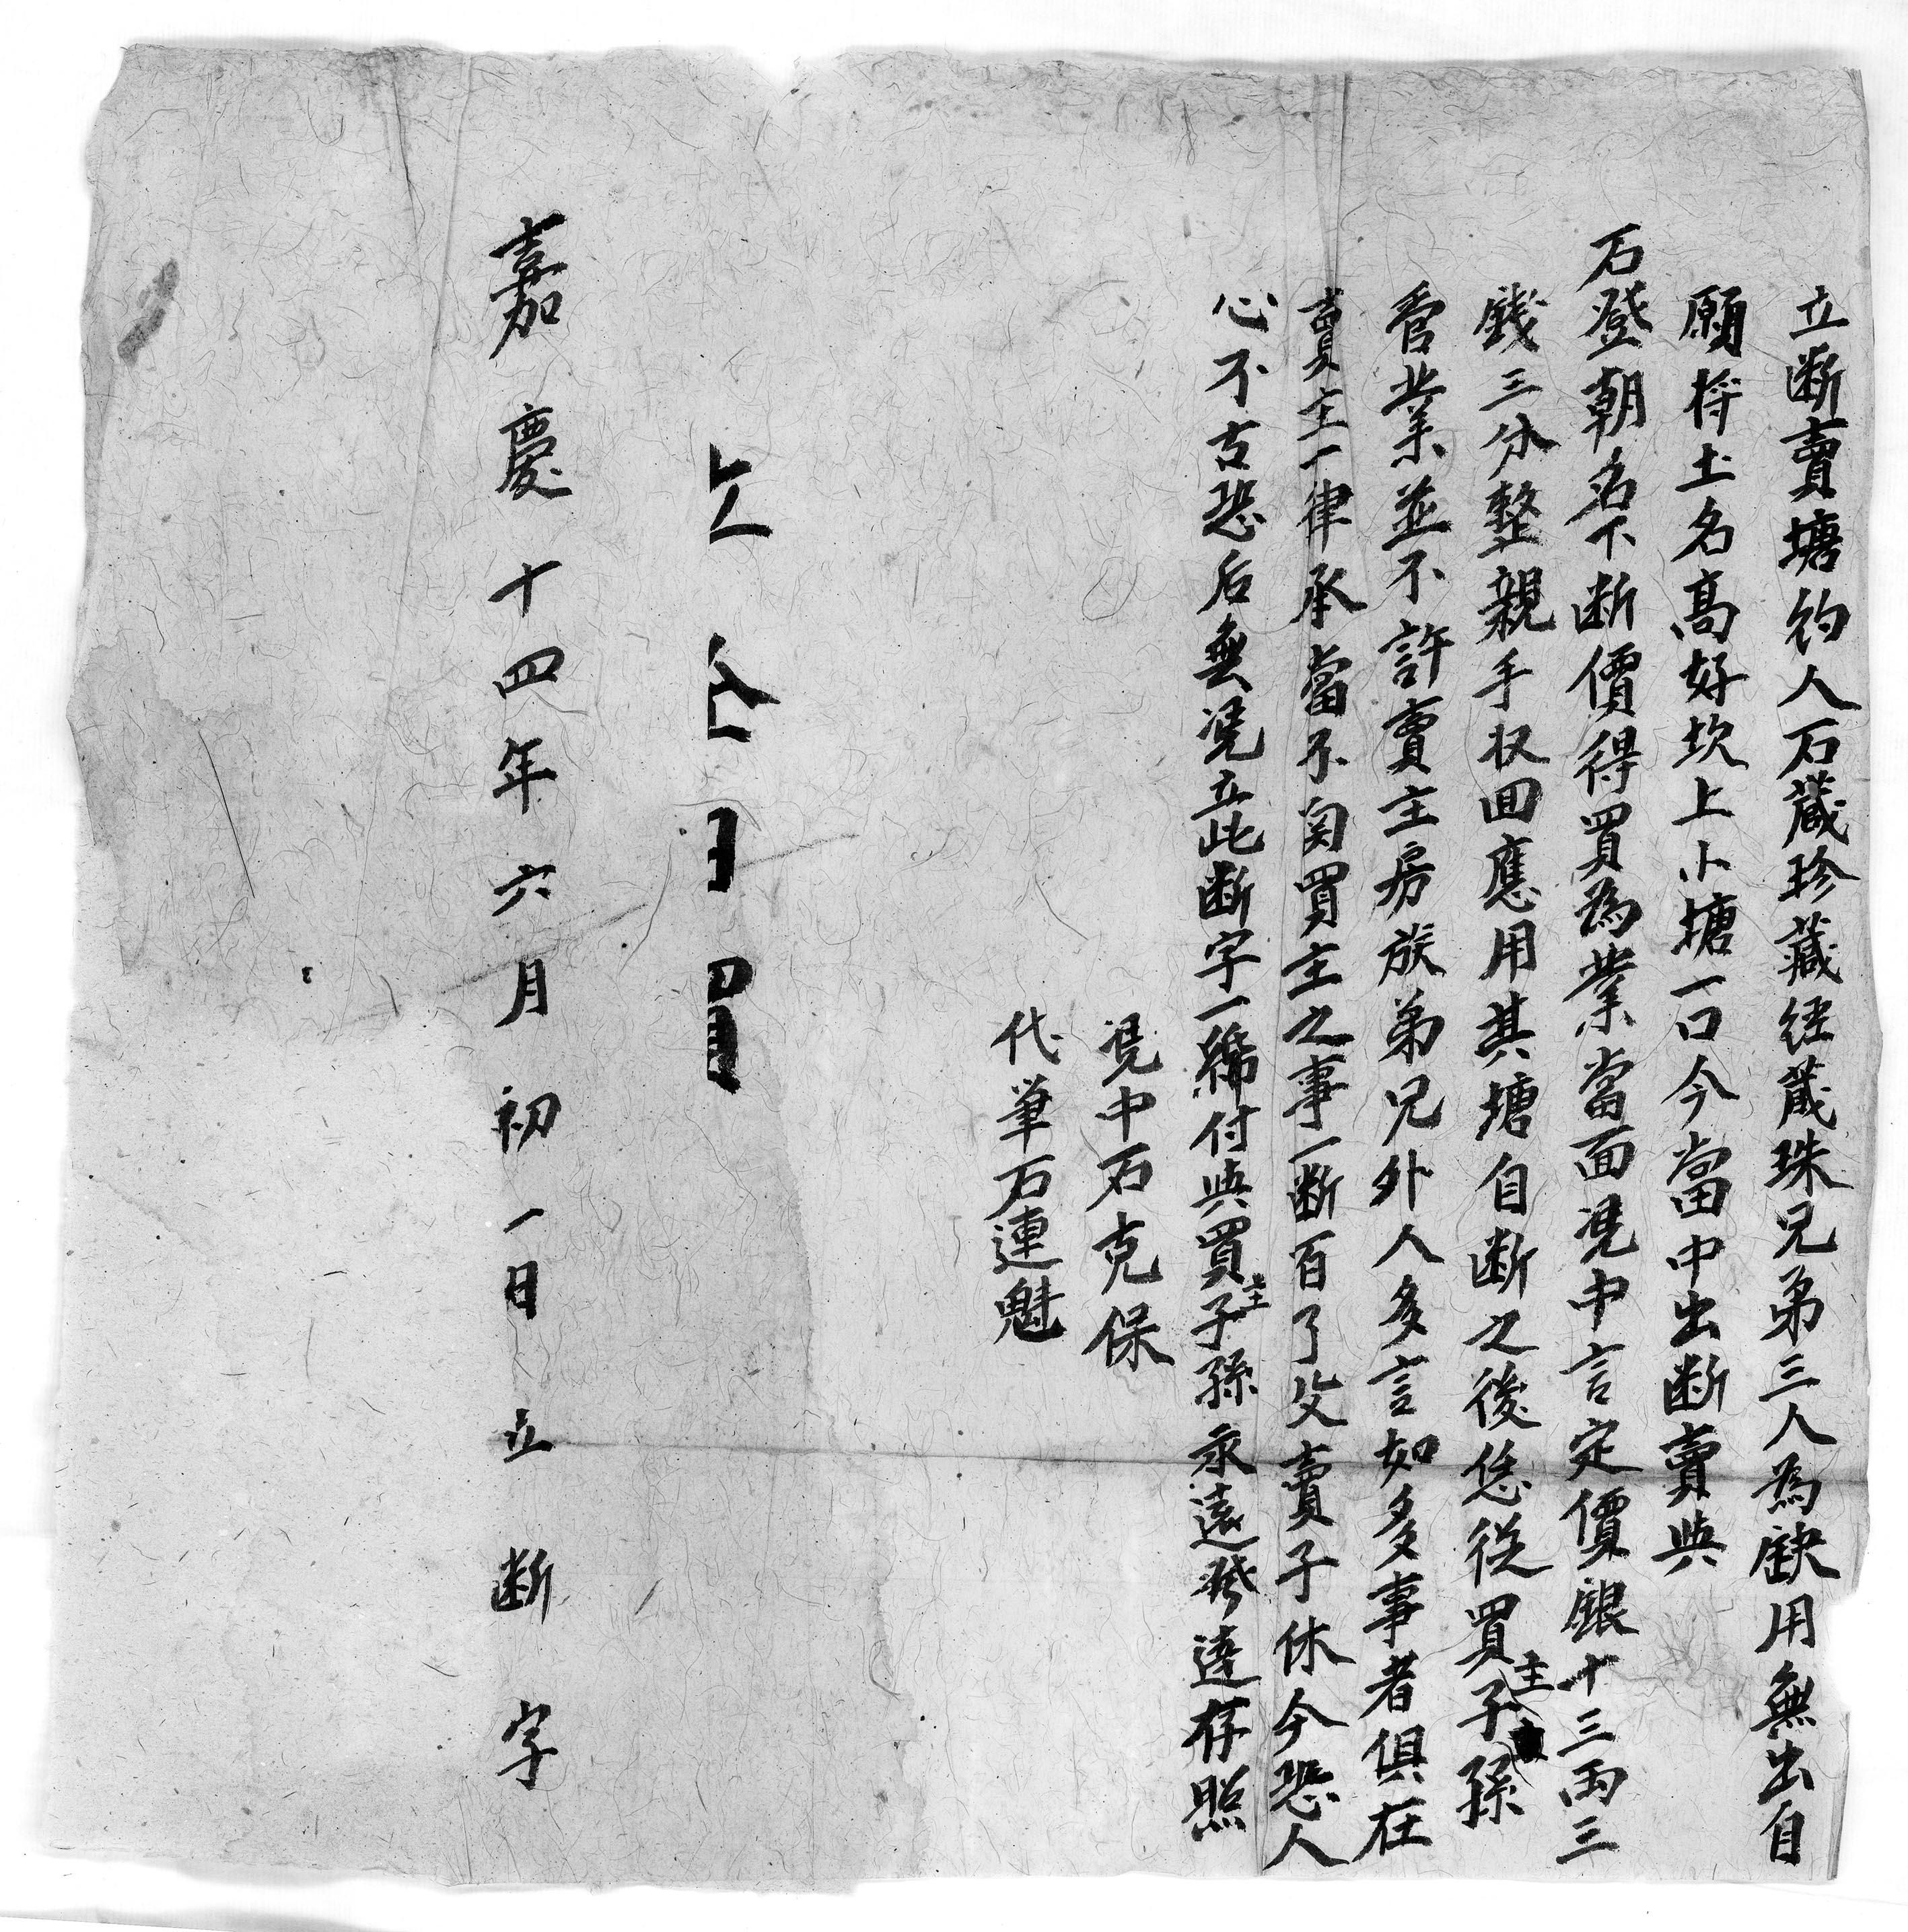 立断賣塘約人石蔵珍藏経蔵珠兄弟三人為缺用無出自
願将土名高好坎上小塘一口今當中出断賣與
石登朝名下断價得買為業當面凴中言定價銀十三両三
錢三分整親手収回應用其塘自断之後恁從買主子孫
管業並不許賣主房族弟兄外人多言如多事者俱在
賣主一律承當不関買主之事一断百了父賣子休今恐人
心不古恐后無凴立此断字一紙付與買主子孫永遠發達存照
凴中石克保
代筆石連魁
嘉慶十四年六月初一日立断字